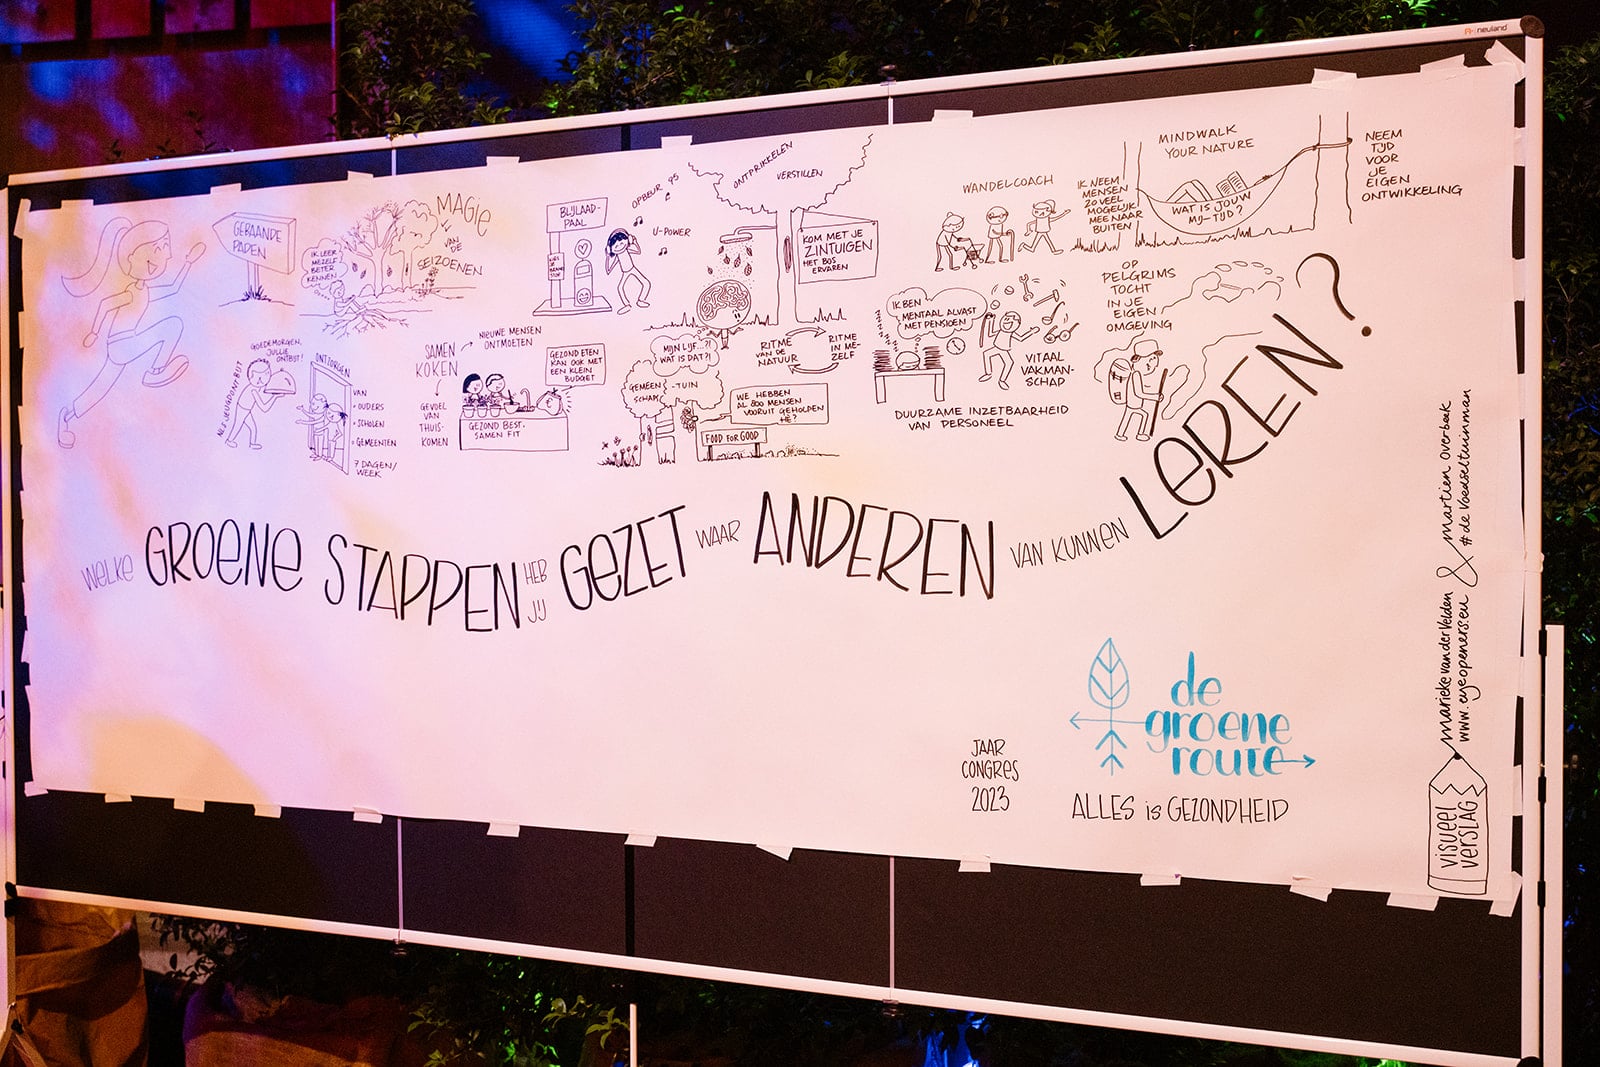 neuland
GEBAANDE
PADEN
IK LEER
MEZELF
BETER
KENNEN
MAGIE
VAN
DE
SEIZOENEN
BIJLAAD-
PAAL
OPBEUR
U-POWER
ONTPRIKKELEN
VERSTILLEN
KOM MET JE
ZINTUIGEN
HET BOS
ERVAREN
WANDELCOACH
IK NEEM
MENSEN
ZOVEEL
MOGELIJK
MEE NAAR
BUITEN
MINDWALK
YOUR NATURE
WAT IS JOUW
MIJ-TIJD?
NEEM
TIJD
VOOR
JE
EIGEN
ONTWIKKELING
GOEDEMORGEN,
JULLIE
ONTBIJT!
NLS JEUGDONTBIJT
ONTZORGEN
VAN
• OUDERS
• SCHOLEN
• GEMEENTEN
7 DAGEN/
WEEK
SAMEN
KOKEN
NIEUWE MENSEN
ONTMOETEN
GEVOEL
VAN
THUIS-
KOMEN
GEZOND ETEN
KAN OOK MET
EEN KLEIN
BUDGET
GEZOND BEST.
SAMEN FIT
MIJN LIJF...?!
WAT IS DAT?!
GEMEEN-
SCHAPS
-TUIN
RITME
VAN DE
NATUUR
RITME
IN ME-
ZELF
WE HEBBEN
AL 800 MENSEN
VOORUIT GEHOLPEN
HÈ?
FOOD FOR GOOD
IK BEN
MENTAAL ALVAST
MET PENSIOEN
VITAAL
VAKMAN-
SCHAP
DUURZAME INZETBAARHEID
VAN PERSONEEL
OP
PELGRIMS
TOCHT
IN JE
EIGEN
OMGEVING
WELKE GROENE STAPPEN HEB JIJ GEZET WAAR ANDEREN VAN KUNNEN LEREN?
de
groene
route
JAAR
CONGRES
2023
ALLES IS GEZONDHEID
marieke van der Velden & martien overbeek
www.eyeopeners.eu # de Voedseltuinman
VISUEEL
VERSLAG